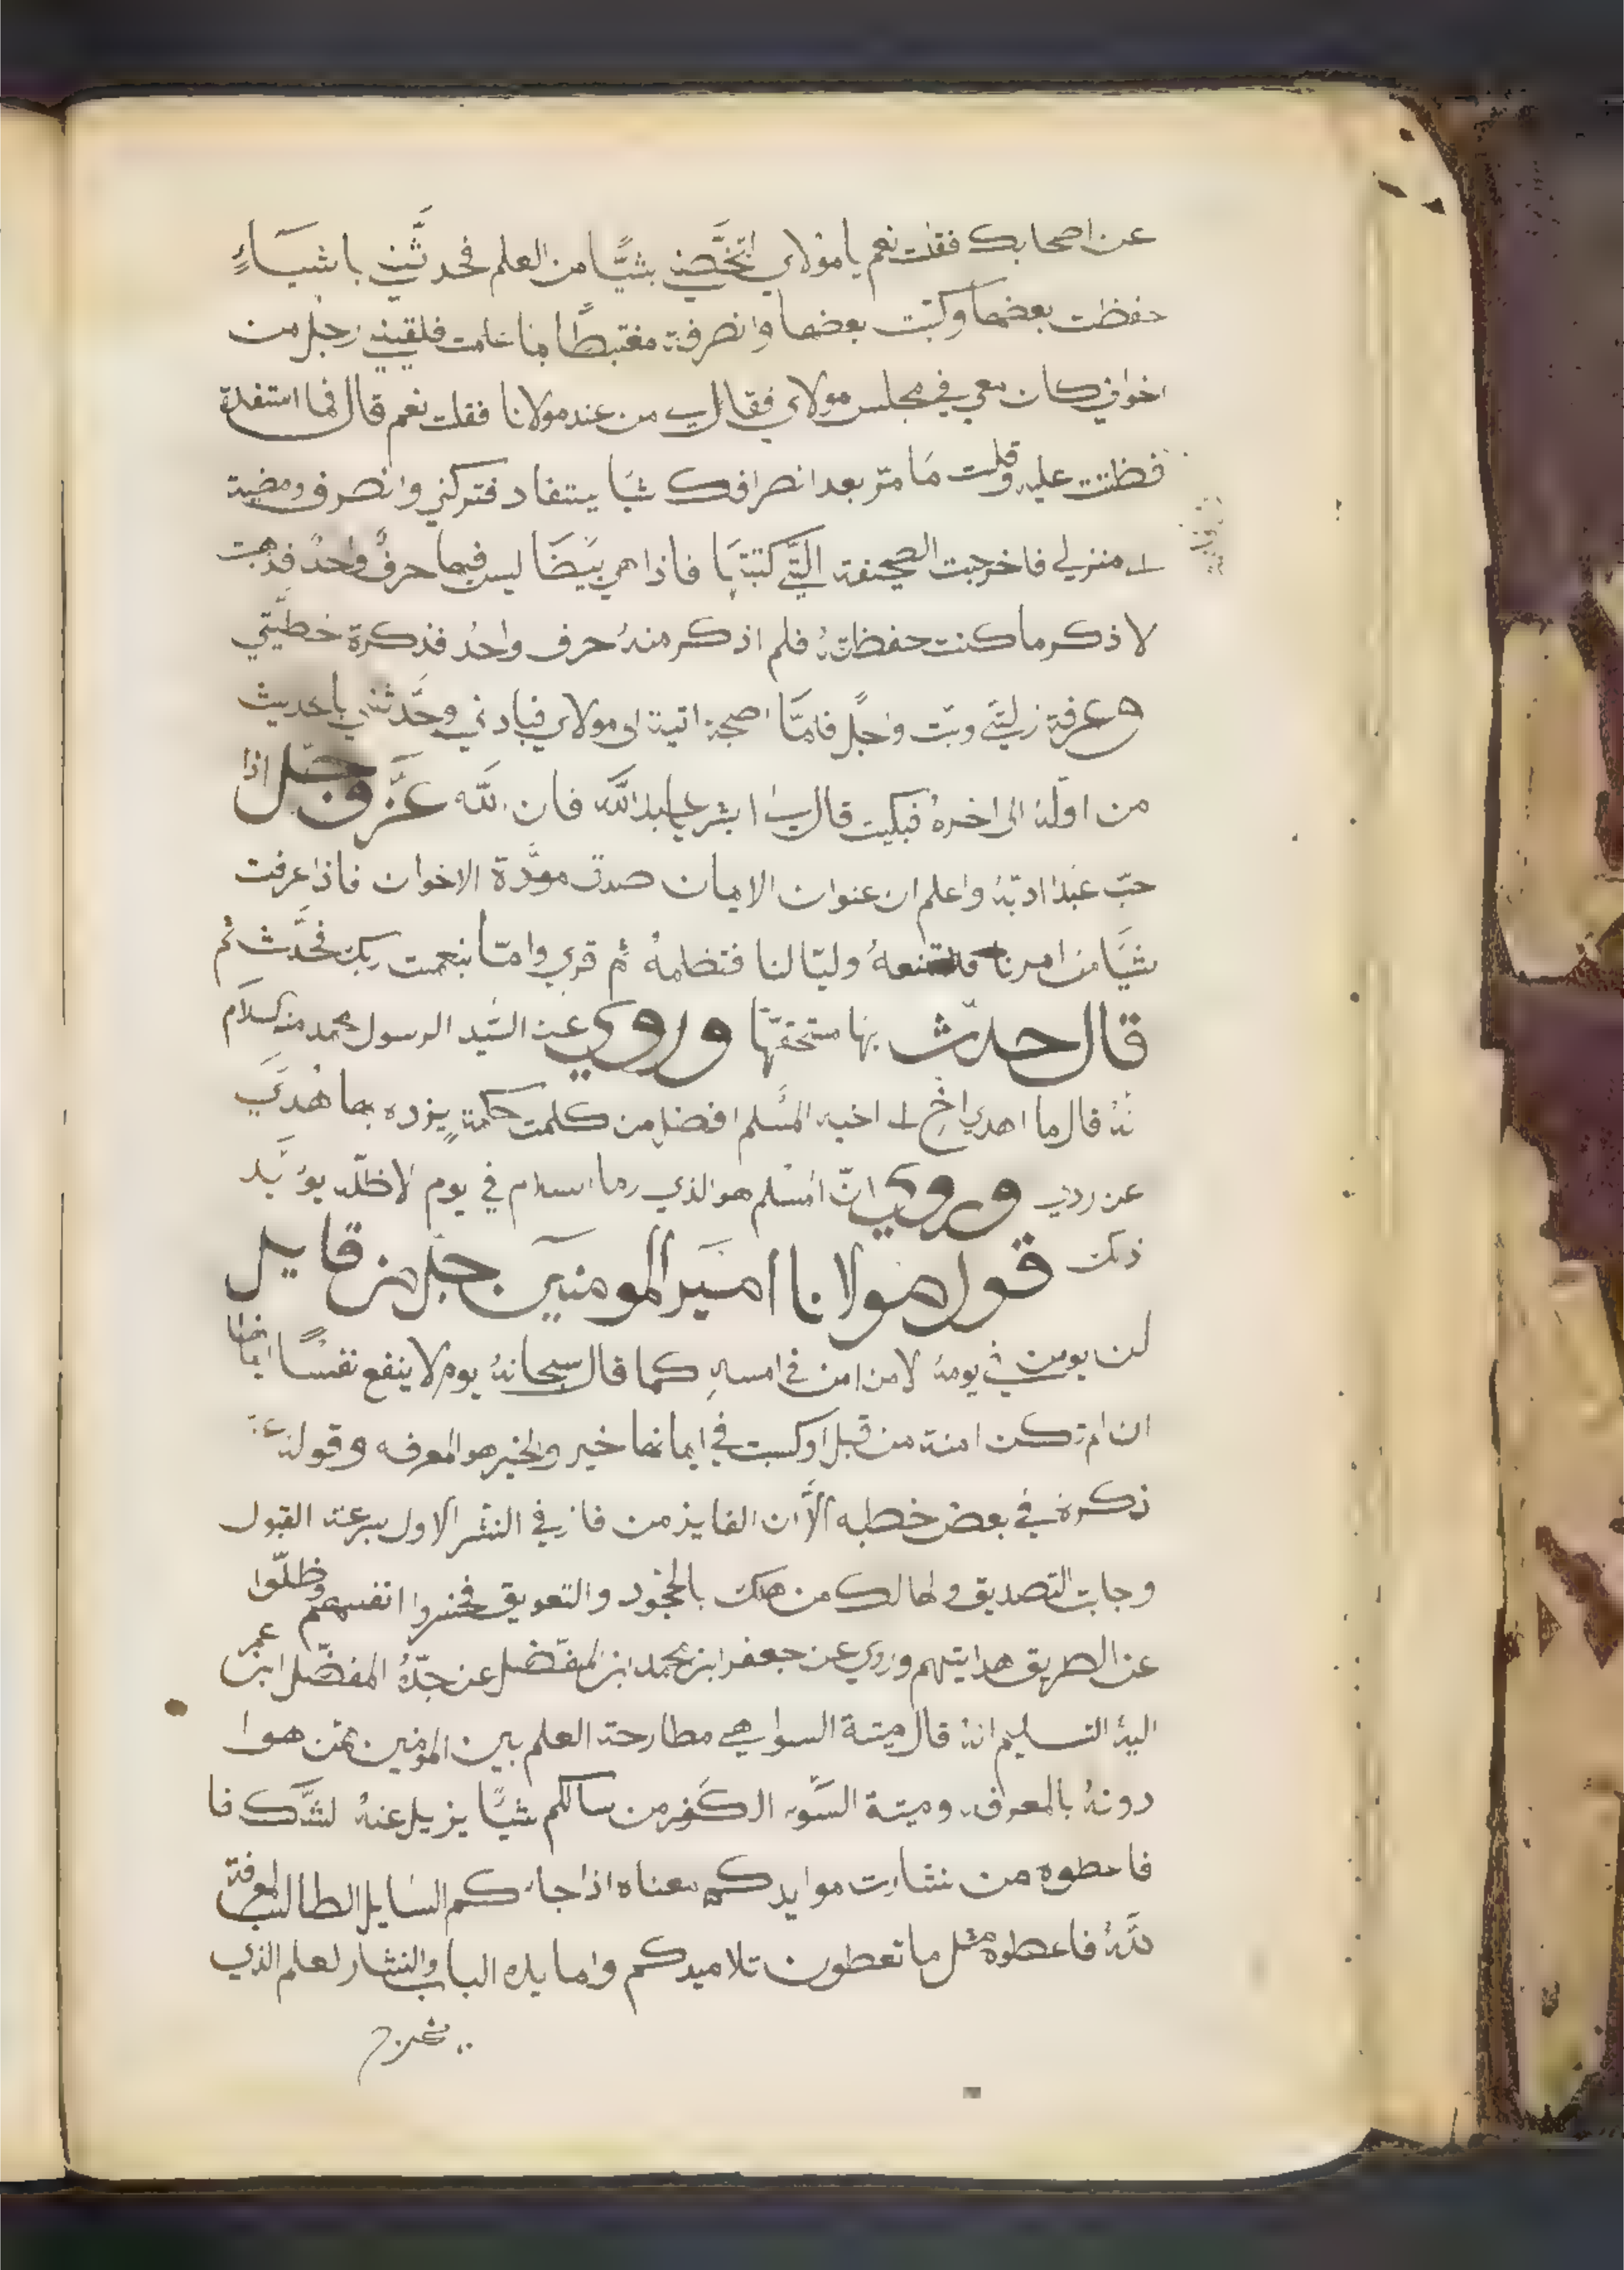 عن اصحابك فقلت نعم يا مولاي اتخصّني بشيًّا من العلم فحدثَّني باشيَاءٍ
حفظت بعضها وكتبت بعضها وانصرفة مغتبطًا بما علمت فلقيني رجل من
اخواني كان معي في مجلس مولاي فقال لي من عند مولانا فقلت نعم قال فما استفدة
فظننت عليه وقلت مَا مرّ بعد انصرافك شيَا يستفاد فتركني وانصرف ومضية
الى منزلي فاخرجت الصحيفة التّي كتبتهَا فاذا هي بيَضَا ليس فيها حرفٌ واحدٌ فذهبت
لاذكر ما كنت حفظتهُ فلم اذكر منهُ حرف واحدُ فذكرة خطيَّتي
وعرفة زلّتي وبتّ وجلًا فلمَّا اصبحة اتية الى مولاي فباداني وحَّدثني باحديث
من اولهُ الى اخرهُ فبكيت قال لي ابشر يا عبد اللَّه فان اللَّه عزَّ وجلّ اذا
حبّ عبدًا ادبّهُ واعلم ان عنوان الايمان صدق مودَّة الاخوان فاذا عرفت
شيَّا من امرنا فلا تمنعهُ وليّا لنا فتظلمهُ ثم قري وامّا بنعمت ربك فحَّدث ثم
قال حدّث بها مستحقيّها وروي عن السّيد الرسول محمد منه السلام
انهُ قال ما اهدي اخٍ الى اخيه المسُلم افضل من كلمت حكمةٍ يزده بها هُدَيً
عن ردي وروي انّ المسْلم هو الذي رما السلام في يوم الاظلّه يوُيَّد
ذلك قول مولانا امير المومنين جلّ من قايل
لن يومن في يومهُ الا من امن في امسهِ كما قال سبحانهُ يوم لا ينفع نفسًا ايمانها
ان لم تكن امنة من قبل او كسبت في ايمانها خير والخير هو المعرفه وقولهُ عزّ
ذكرهُ في بعض خطبه الَّا ان الفايز من فاز في النشر الاول بسرعة القبول
وجابت التصديق والهالك من هلك بالجحُود والتعويق فخسروا انفسهم وظلّوا
عن الطريق هدايتهم وروي عن جعفر ابن محمد ابن المفضّل عن جدّهُ المفضّل ابن عمر
اليهُ التسليم انهُ قال ميتة السوا هي مطارحة العلم بين المومنين بمن هوا
دونهُ بالمعرفه وميتة السَّوء الكفر من سالكم شيًّا يزيل عنهُ لشَّك فا
فاعطوه من نثارت موايدكم معناه اذا جاءكم السايل الطالب لمعرفة
للّهُ فاعطوه مثل ما تعطون تلاميدكم والمايده الباب والنثار لعلم الذي
يخرج